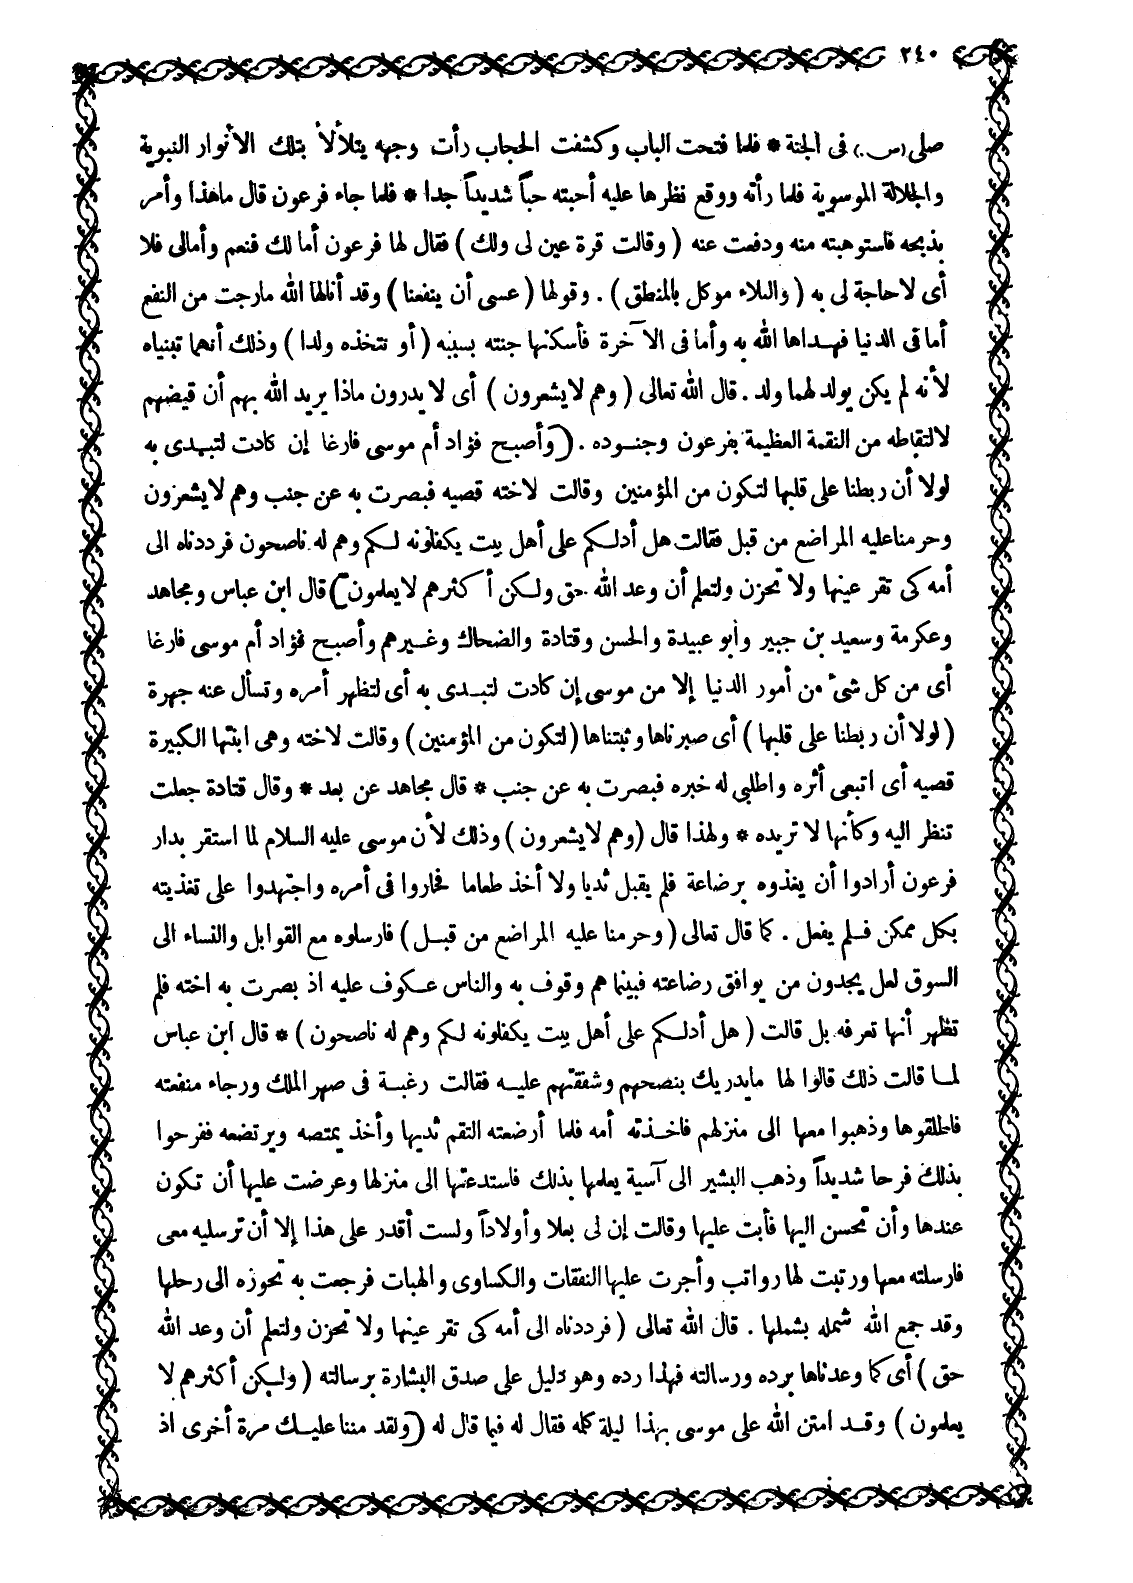 ٢٤٠
صلى (س.) فى الجنة * فلما فتحت الباب وكشفت الحجاب رأت وجهه يتلألأ بتلك الأنوار النبوية
والجلالة الموسوية فلما رأته ووقع نظرها عليه أحبته حباً شديداً جدا * فلما جاء فرعون قال ماهذا وأمر
بذبحه فاستوهبته منه ودفعت عنه ( وقالت قرة عين لى ولك ) فقال لها فرعون أما لك فنعم وأمالى فلا
أى لاحاجة لى به ( والبلاء موكل بالمنطق ) . وقولها ( عسى أن ينفعنا ) وقد أنالها الله مارجت من النفع
أما فى الدنيا فهداها الله به وأما فى الآخرة فأسكنها جنته بسببه ( أو نتخذه ولدا ) وذلك أنهما تبنياه
لأنه لم يكن يولد لهما ولد . قال الله تعالى ( وهم لايشعرون ) أى لا يدرون ماذا يريد الله بهم أن قيضهم
لالتقاطه من النقمة العظيمة بفرعون وجنوده . ( وأصبح فؤاد أم موسى فارغا إن كادت لتبدى به
لولا أن ربطنا على قلبها لتكون من المؤمنين وقالت لاخته قصيه فبصرت به عن جنب وهم لايشعرون
وحرمناعليه المراضع من قبل فقالت هل أدلكم على أهل بيت يكفلونه لكم وهم له ناصحون فرددناه الى
أمه كى تقر عينها ولا تحزن ولتعلم أن وعد الله حق ولكن أكثرهم لايعلمون ) قال ابن عباس ومجاهد
وعكرمة وسعيد بن جبير وأبو عبيدة والحسن وقتادة والضحاك وغيرهم وأصبح فؤاد أم موسى فارغا
أى من كل شئ من أمور الدنيا إلا من موسى إن كادت لتبدى به أى لتظهر أمره وتسأل عنه جهرة
( لولا أن ربطنا على قلبها ) أى صبرناها وثبتناها ( لتكون من المؤمنين ) وقالت لاخته وهى ابنتها الكبيرة
قصيه أى اتبعى أثره واطلبى له خبره فبصرت به عن جنب * قال مجاهد عن بعد * وقال قتادة جعلت
تنظر اليه وكأنها لا تريده * ولهذا قال ( وهم لايشعرون ) وذلك لأن موسى عليه السلام لما استقر بدار
فرعون أرادوا أن يغذوه برضاعة فلم يقبل ثديا ولا أخذ طعاما فحاروا فى أمره واجتهدوا على تغذيته
بكل ممكن فلم يفعل . كما قال تعالى ( وحرمنا عليه المراضع من قبل ) فارسلوه مع القوابل والنساء الى
السوق لعل يجدون من يوافق رضاعته فبينما هم وقوف به والناس عكوف عليه اذ بصرت به اخته فلم
تظهر أنها تعرفه بل قالت ( هل أدلكم على أهل بيت يكفلونه لكم وهم له ناصحون ) * قال ابن عباس
لما قالت ذلك قالوا لها مايدريك بنصحهم وشفقتهم عليه فقالت رغبة فى صهر الملك ورجاء منفعته
فاطلقوها وذهبوا معها الى منزلهم فاخذته أمه فلما أرضعته التقم ثديها وأخذ يمتصه ويرتضعه ففرحوا
بذلك فرحا شديداً وذهب البشير الى آسية يعلمها بذلك فاستدعتها الى منزلها وعرضت عليها أن تكون
عندها وأن تحسن اليها فأبت عليها وقالت إن لى بعلا وأولاداً ولست أقدر على هذا إلا أن ترسليه معى
فارسلته معها ورتبت لها رواتب وأجرت عليها النفقات والكساوى والهبات فرجعت به تحوزه الى رحلها
وقد جمع الله شمله بشملها . قال الله تعالى ( فرددناه الى أمه كى تقر عينها ولا تحزن ولتعلم أن وعد الله
حق ) أى كما وعدناها برده ورسالته فهذا رده وهو دليل على صدق البشارة برسالته ( ولكن أكثرهم لا
يعلمون ) وقد امتن الله على موسى بهذا ليلة كلمه فقال له فيما قال له ( ولقد مننا عليك مرة أخرى اذ